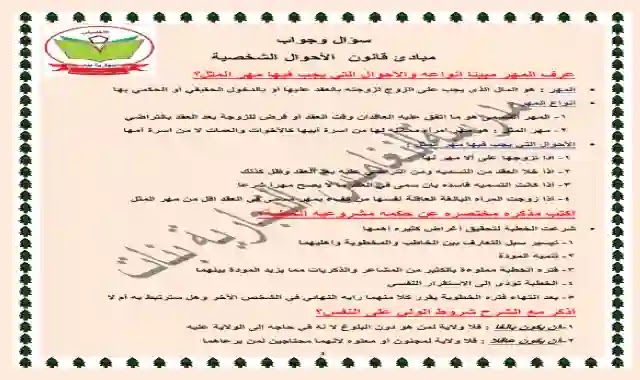 سؤال وجواب
مبادئ قانون الأحوال الشخصية
عرف المهر مبينا أنواعه والأحوال التي يجب فيها مهر المثل؟
المهر : هو المال الذي يجب على الزوج لزوجته بالعقد عليها أو بالدخول الحقيقي أو الحكمي بها
أنواع المهر
١- المهر المسمى هو ما اتفق عليه العاقدان وقت العقد أو فرض للزوجة بعد العقد بالتراضي
٢- مهر المثل : هو مهر امرأة مماثلة لها من أسرة أبيها كالأخوات والعمات لا من أسرة أمها
الأحوال التي يجب فيها مهر المثل :
١- اذا تزوجها على ألا مهر لها
٢- اذا خلا العقد من التسميه ومن التراضي عليه بعد العقد وظل كذلك
٣- اذا كانت التسميه فاسده بان سمى في العقد ما لا يصح مهرا شرعا
٤- اذا زوجت المراه البالغة العاقلة نفسها من كفء بمهر مسمى في العقد اقل من مهر المثل
اكتب مذكره مختصره عن حكمه مشروعيه الخطبه؟
شرعت الخطبة لتحقيق أغراض كثيره أهمها
١- تيسير سبل التعارف بين الخاطب والمخطوبة وأهليهما
٢- تنميه المودة
٣- فتره الخطبة مملوءة بالكثير من المشاعر والذكريات مما يزيد المودة بينهما
٤- الخطبة تؤدى إلى الاستقرار النفسي
٥- بعد انتهاء فتره الخطوبة يقرر كلا منهما رايه النهائي في الشخص الآخر وهل سترتبط به أم لا
أذكر مع الشرح شروط الولي على النفس؟
١- أن يكون بالغا : فلا ولاية لمن هو دون البلوغ لا نه في حاجه إلى الولاية عليه
٢- أن يكون عاقلا : فلا ولاية لمجنون أو معتوه لانهما محتاجين لمن يرعاهما